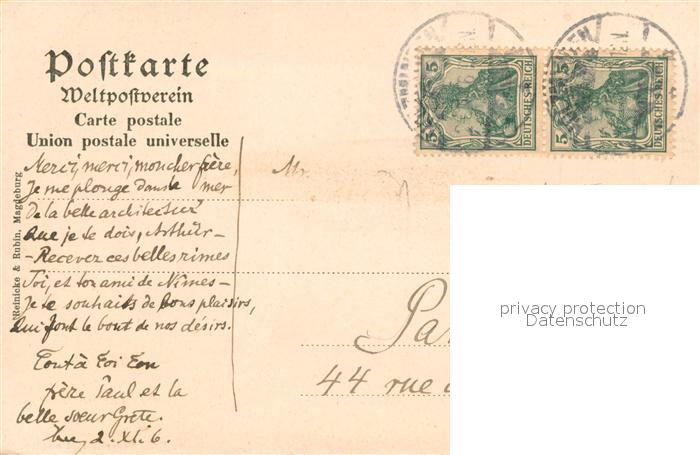 Postkarte
Weltpostverein
Carte postale
Union postale universelle
Reinicke & Rubin, Magdeburg
5 DEUTSCHES REICH
5 DEUTSCHES REICH
Merci, merci, mon cher frère,
Je me plonge dans la mer
De la belle architectur
Que je te dois, Arthur –
– Recevez ces belles rimes
Toi, et ton ami de Nimes –
Je te souhaits de bons plaisirs,
Qui font le bout de nos désirs.
Tout à toi ton
frère Paul et la
belle soeur Grete.
2. XI. 6.
Mr.
Pa
44 rue
privacy protection
Datenschutz